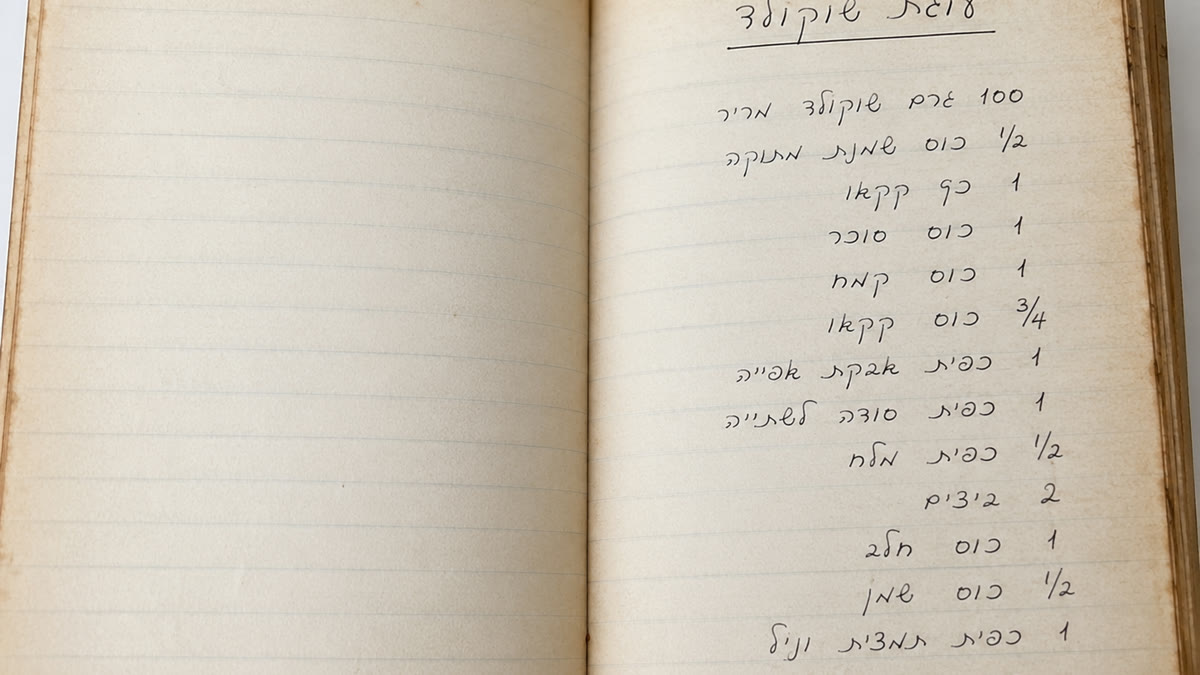 עוגת שוקולד
100 גרם שוקולד מריר
1/2 כוס שמנת מתוקה
1 כף קקאו
1 כוס סוכר
1 כוס קמח
3/4 כוס קקאו
1 כפית אבקת אפייה
1 כפית סודה לשתייה
1/2 כפית מלח
2 ביצים
1 כוס חלב
1/2 כוס שמן
1 כפית תמצית וניל